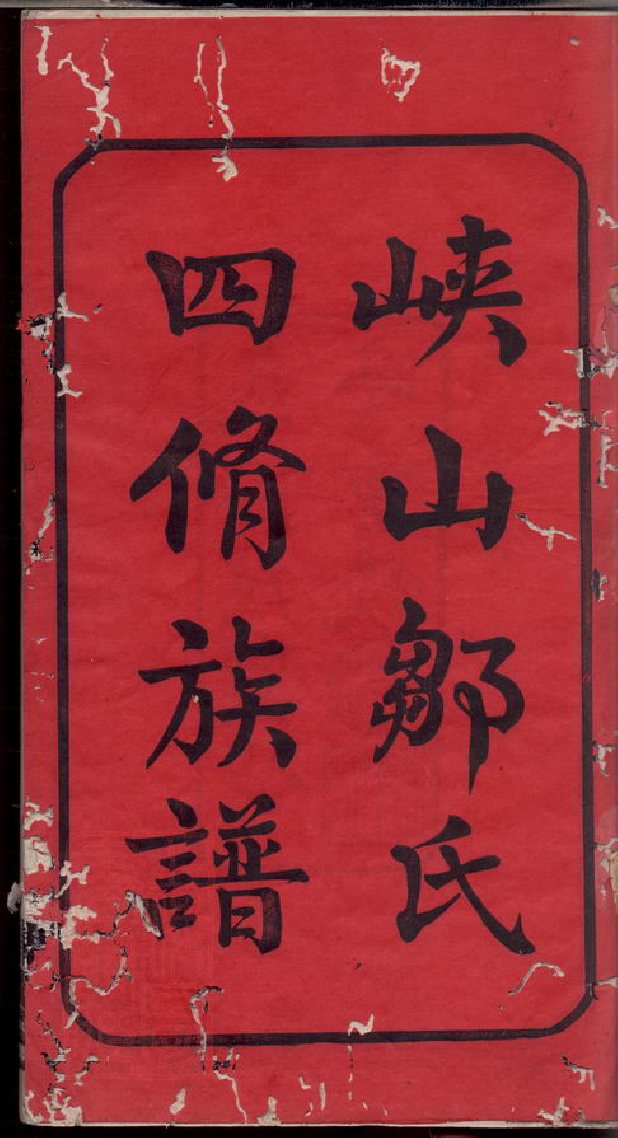 峽山鄒氏
四脩族譜